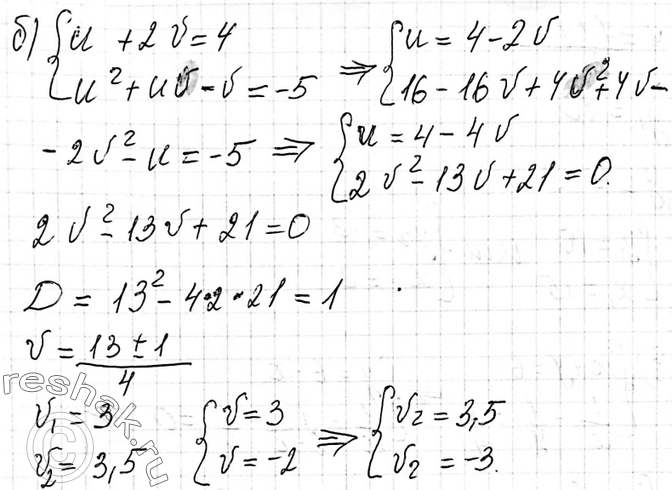 б) { u + 2v = 4
u² + uv - v = -5 ⇒ { u = 4 - 2v
16 - 16v + 4v² + 4v -
- 2v² - u = -5 ⇒ { u = 4 - 4v
2v² - 13v + 21 = 0.
2v² - 13v + 21 = 0
D = 13² - 4·2·21 = 1
v = (13 ± 1)/4
v₁ = 3
v₂ = 3,5
{ v = 3
v = -2 ⇒ { v₂ = 3,5
v₂ = -3.
reshak.ru